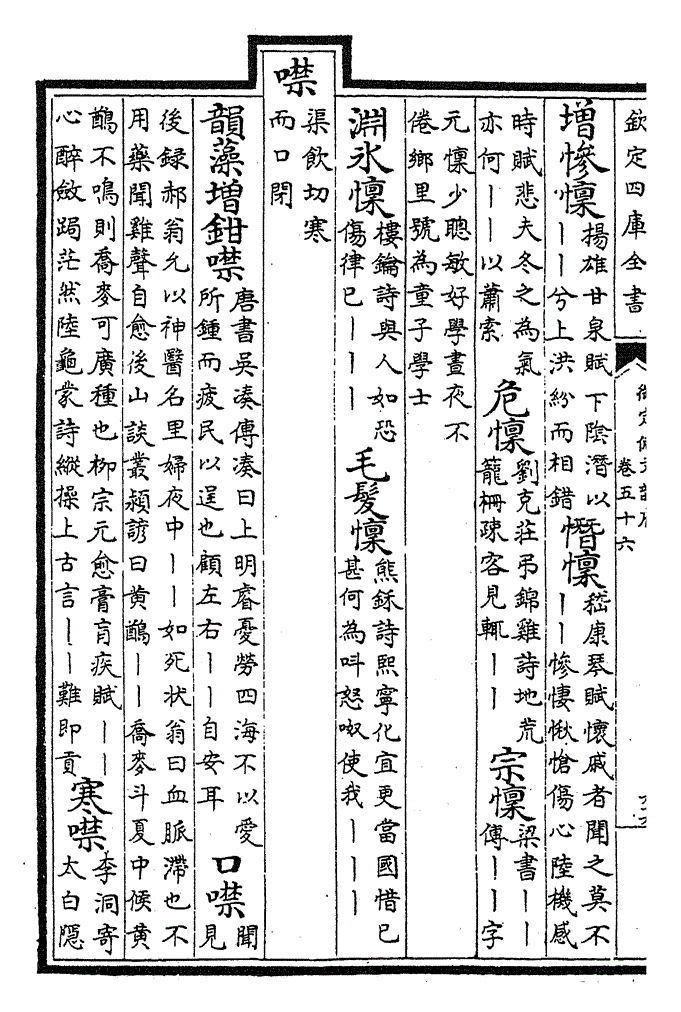 欽定四庫全書
卷五十六
增慘懍
揚雄甘泉賦下陰潛以
丨丨兮上洪紛而相錯
憯懍
嵇康琴賦懷戚者聞之莫不
丨丨慘悽愀愴傷心陸機感
時賦悲夫冬之為氣
亦何丨丨以蕭索
危懍
劉克莊弔錦雞詩地荒
籠柵疎客見輒丨丨
宗懍
梁書丨丨
傳丨丨字
元懍少聰敏好學晝夜不
倦鄉里號為童子學士
淵氷懍
樓鑰詩與人如恐
傷律已丨丨丨
毛髮懍
熊鉌詩熙寧化宜更當國惜已
甚何為叫怒呶使我丨丨丨
噤
渠飲切寒
而口閉
韻藻增鉗噤
唐書吳湊傳湊曰上明睿憂勞四海不以愛
所鍾而疲民以逞也顧左右丨丨自安耳
口噤
聞
見
後録郝翁允以神醫名里婦夜中丨丨如死狀翁曰血脈滯也不
用藥聞雞聲自愈後山談叢潁諺曰黄鸝丨丨喬麥斗夏中候黄
鸝不鳴則喬麥可廣種也柳宗元愈膏肓疾賦丨丨
心醉斂跼茫然陸龜蒙詩縱操上古言丨丨難即貢
寒噤
李洞寄
太白隱